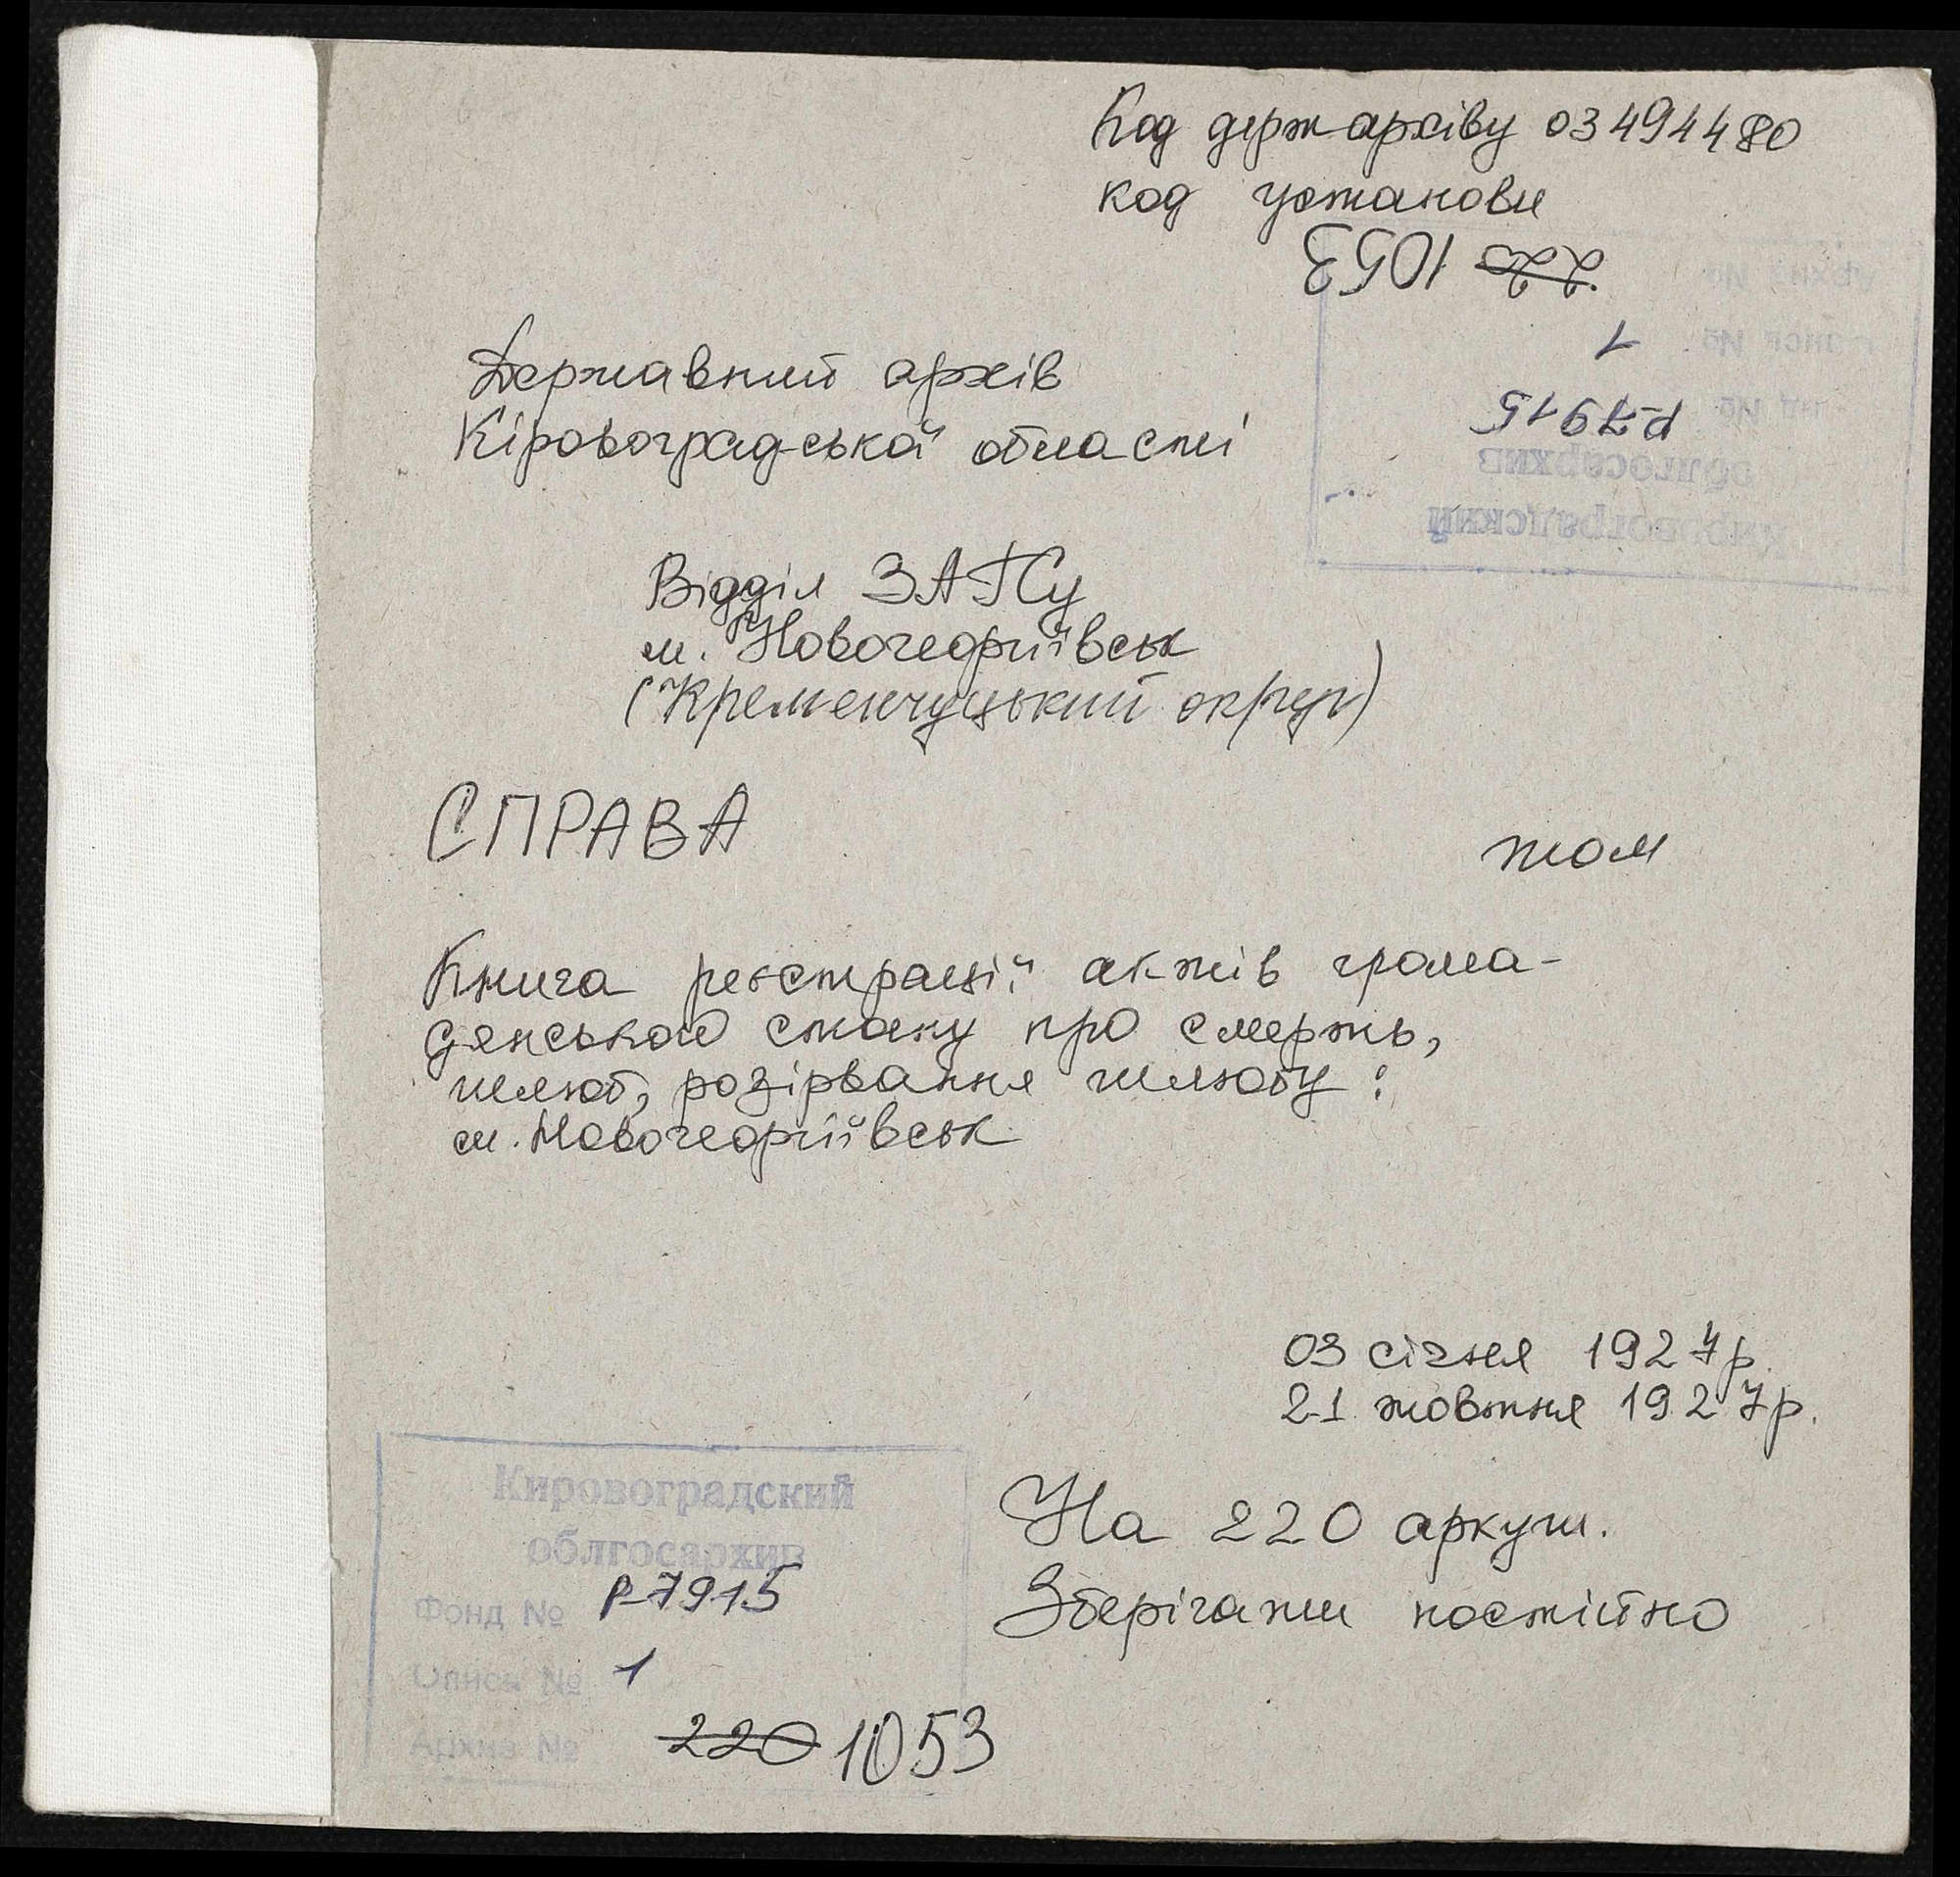 Код держархіву 03494480
код установи
220 1053
1
Р-7915
облгосархив
Кировоградский
Державний архів
Кіровоградської області
Відділ ЗАГСу
м. Новогеоргіївськ
(Кременчуцький округ)
СПРАВА
том
Книга реєстрації актів грома-
дянського стану про смерть,
шлюб, розірвання шлюбу:
м. Новогеоргіївськ
03 січня 1927р.
21 жовтня 1927р.
На 220 аркуш.
Зберігати постійно
Кировоградский
облгосархив
Фонд № Р-7915
Опись № 1
Архив № 220 1053